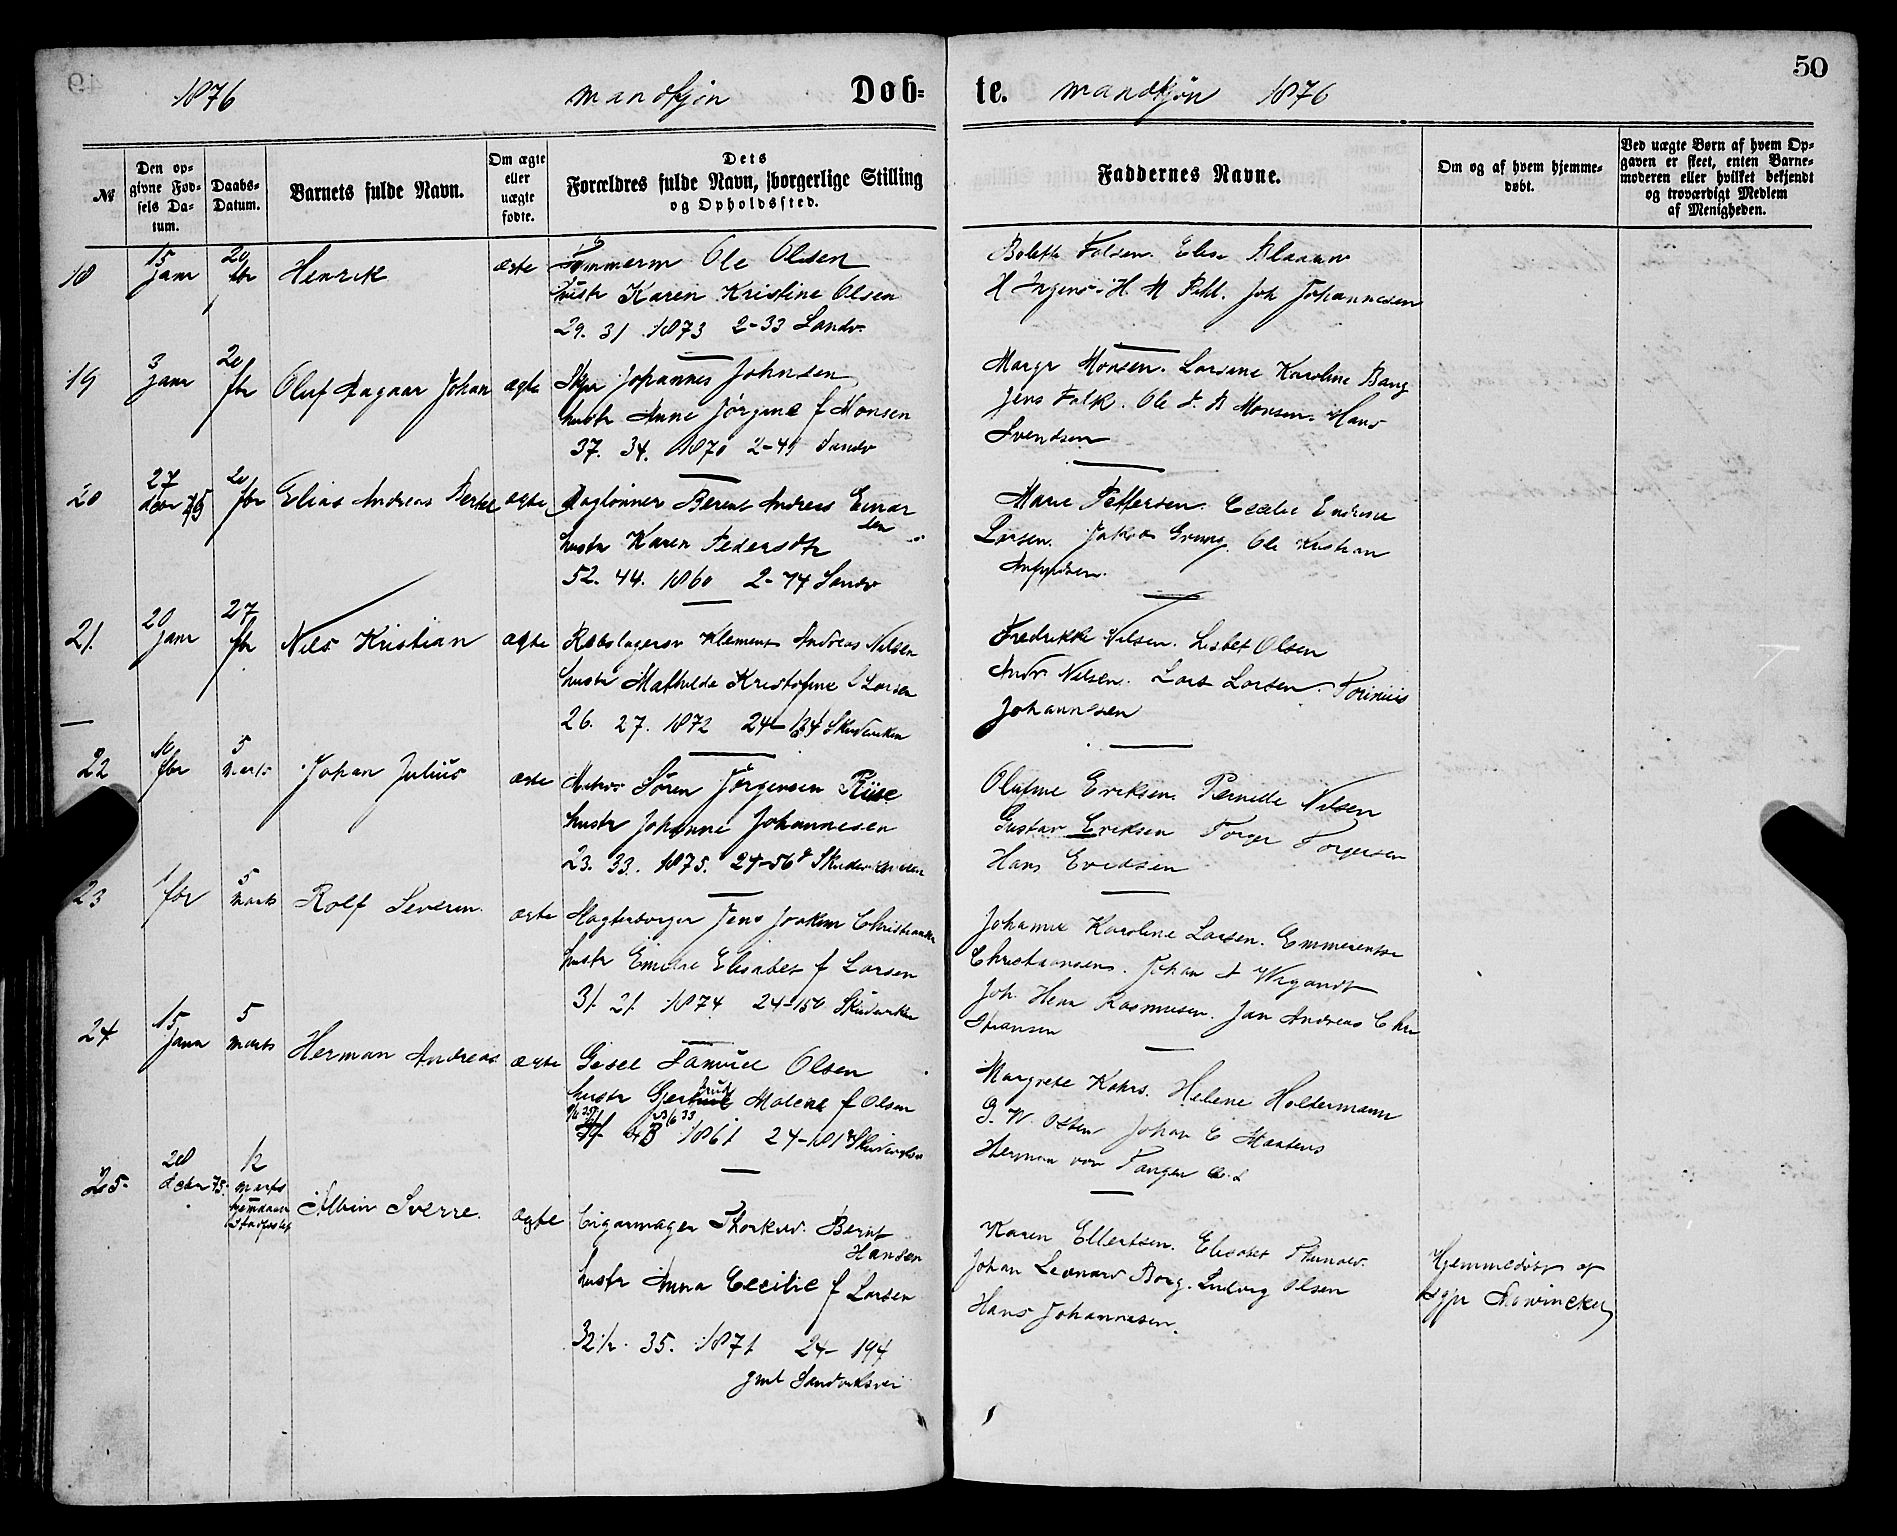 1876 mandkjøn Døb- te. mandkjøn 1876 50
№
Den op-
givne Fød-
sels Da-
tum.
Daabs-
Datum.
Barnets fulde Navn.
Om ægte
eller
uægte
fødte.
Dets
Forældres fulde Navn, borgerlige Stilling
og Opholdssted.
Faddernes Navne.
Om og af hvem hjemme-
døbt.
Ved uægte Børn af hvem Op-
gaven er skeet, enten Barne-
moderen eller hvilket bekjendt
og troværdigt Medlem
af Menigheden.
18 15 Janr 20 fbr Henrik ægte Tømmerm Ole Olsen
hustr Karen Kristine Olsen
29. 31. 1873 2-33 Sandv.
Bolette Folsen. Elise
H M Joh Johannesen
19 3 Janr 20 fbr Oluf Dagaar Johan ægte Skpr Johannes Johnsen
hustr Anne Jørgine f Monsen
37. 34. 1870 2-49 Sandv
Margr Monsen. Larsine Karoline Bang
Jens Falk. Ole Monsen. Hans
Svendsen
20 27 debr 75 20 fbr Elias Andreas ægte Daglønner Berent Andreas Einar
sen
hustr Karen Pedersdtr
52. 44. 1860 2-74 Sandv
Marie Pettersen. Cecilie Endresen
Larsen. Jakob Ole Kristian
21. 20 Janr 27 fbr Nils Kristian ægte Rebslagersv Klement Andreas Nilsen
hustr Mathilde Kristofine f Larsen
26. 27. 1872 24-134 Skudeviken
Fredrikke Nilsen. Lisbet Olsen
Andr Nilsen. Lars Larsen.
Johannesen
22 10 fbr 5 Marts Johan Julius ægte Matros Søren Jørgensen Riise
hustr Johanne Johannesen
23. 33. 1875. 24-56
Olufine Eriksen. Pernille Nilsen
Gustav Eriksen Torger Torgersen
Hans Evedsen
23 1 fbr 5 Marts Rolf Severin. ægte Jens Joakim Christiansen
hustr Emilie Elisabet f Larsen
31. 21. 1874 24-150 Skudeviken
Johanne Karoline Larsen. Emmerentse
Christiansen. Johan Wigandt
Joh. Henr Rasmussen. Jan Andreas Chri
stiansen
24 15 Janr 5 Marts Herman Andreas ægte Gesel Samuel Olsen
hustr Gjertrud Malene f Olsen
1861 24-181 Skudeviken
Margrete Kahrs. Helene Holdermann
G. W. Otten Johan C Martens
Herman von Tangen
25. 28 debr 75. 12 marts Albin Sverre. ægte Cigarmager Thorkild Bernt
Hansen
hustr Anna Cecilie f Larsen
32½. 35. 1871 24- 194
gml Sandviksvei
Karen Ellertsen. Elisabet
Johan Leonard Borg. Ludvig Olsen
Hans Johannesen.
Hjemmedøbt af